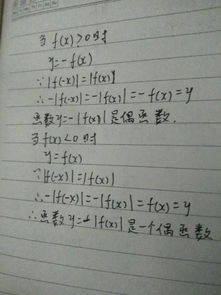 当 f(x)>0时
y=-f(x)
∵|f(-x)|=|f(x)|
∴-|f(-x)|=-|f(x)|=-f(x)=y
函数y=-|f(x)|是偶函数.
当f(x)<0时
y=f(x)
∵|f(-x)|=|f(x)|
∴-|f(-x)|=-|f(x)|=f(x)=y
∴函数y=-|f(x)|是一个偶函数